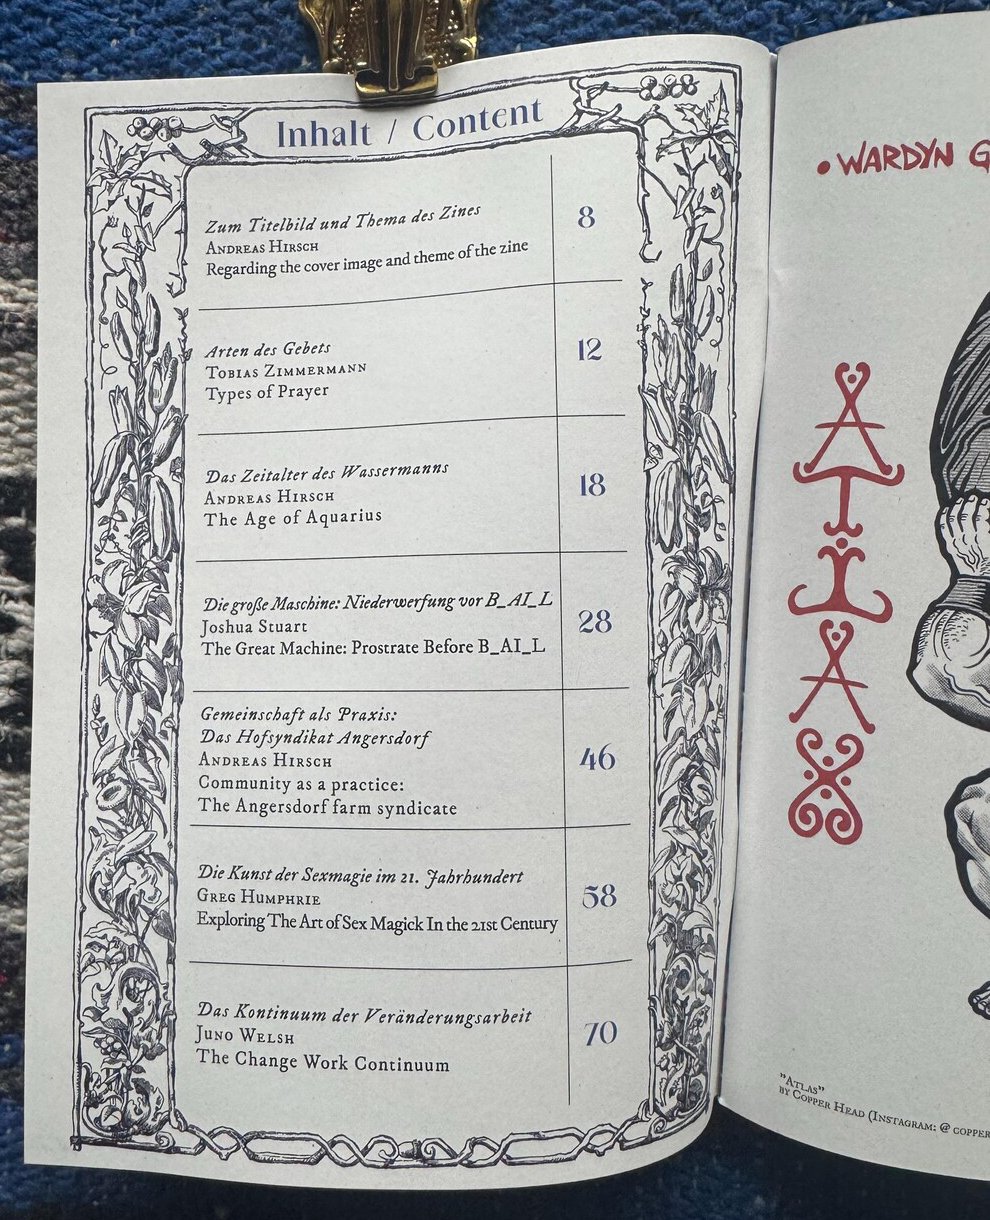 Inhalt / Content
Zum Titelbild und Thema des Zines
Andreas Hirsch
Regarding the cover image and theme of the zine
8
Arten des Gebets
Tobias Zimmermann
Types of Prayer
12
Das Zeitalter des Wassermanns
Andreas Hirsch
The Age of Aquarius
18
Die große Maschine: Niederwerfung vor B_AI_L
Joshua Stuart
The Great Machine: Prostrate Before B_AI_L
28
Gemeinschaft als Praxis:
Das Hofsyndikat Angersdorf
Andreas Hirsch
Community as a practice:
The Angersdorf farm syndicate
46
Die Kunst der Sexmagie im 21. Jahrhundert
Greg Humphrie
Exploring The Art of Sex Magick In the 21st Century
58
Das Kontinuum der Veränderungsarbeit
Juno Welsh
The Change Work Continuum
70
• WARDYN G
ATLAS
"Atlas"
by Copper Head (Instagram: @ copper